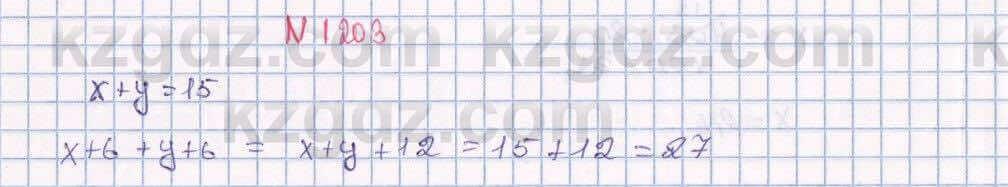 N 1203
kzgdz.com kzgdz.com
x+y=15
kzgdz.com
x+6+y+6 = x+y+12 = 15+12 = 27